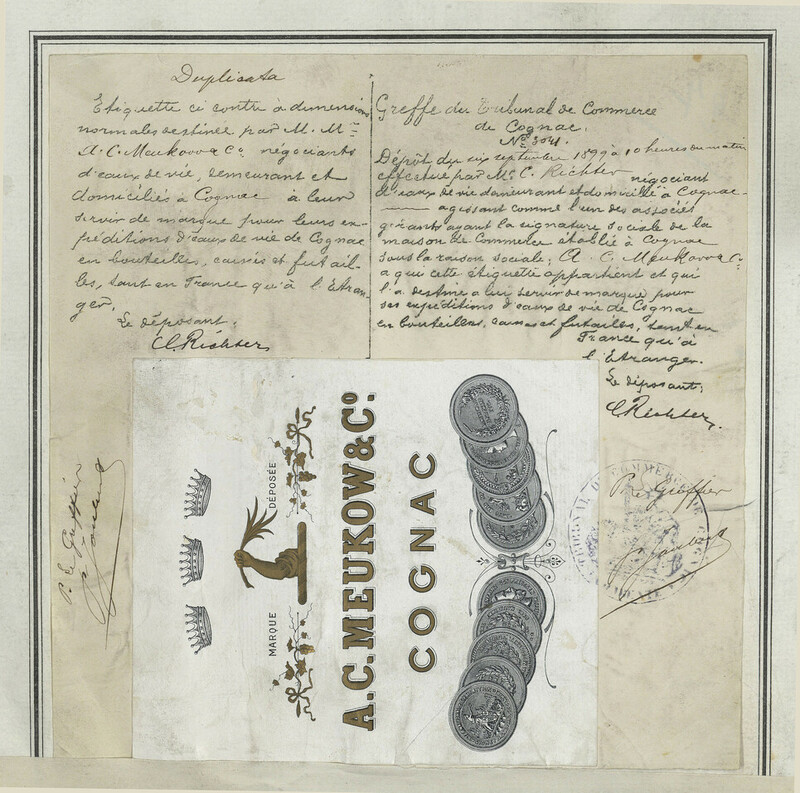 Duplicata
Etiquette ci contre à dimensions
normales destinée par M. Mrs
A. C. Meukow & Co négociants
d'eaux de vie, demeurant et
domiciliés à Cognac à leur
servir de marque pour leurs ex-
péditions d'eaux de vie de Cognac
en bouteilles, caisses et futail-
les, tant en France qu'à l'Etran-
ger.
Le déposant.
C. Richter
Greffe du Tribunal de Commerce
de Cognac.
No
Dépôt du six septembre 1899 à 10 heures du matin
effectué par Mr C. Richter négociant
d'eaux de vie demeurant et domicilié à Cognac
agissant comme l'un des associés
gérants ayant la signature sociale de la
maison de Commerce établie à Cognac
sous la raison sociale; A. C. Meukow & Co
a qui cette étiquette appartient et qui
l'a destine a lui servir de marque pour
ses expéditions d'eaux de vie de Cognac
en bouteilles, caisses et futailles, tant en
France qu'à
l'Etranger.
Le déposant;
C. Richter
P. le Greffier
P. le Greffier
TRIBUNAL DE COMMERCE DE COGNAC
MARQUE DÉPOSÉE
A.C.MEUKOW & Co.
COGNAC